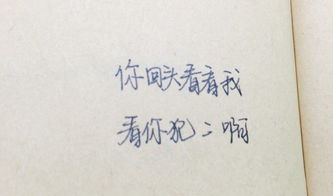 你回头看看我
看你犯二啊